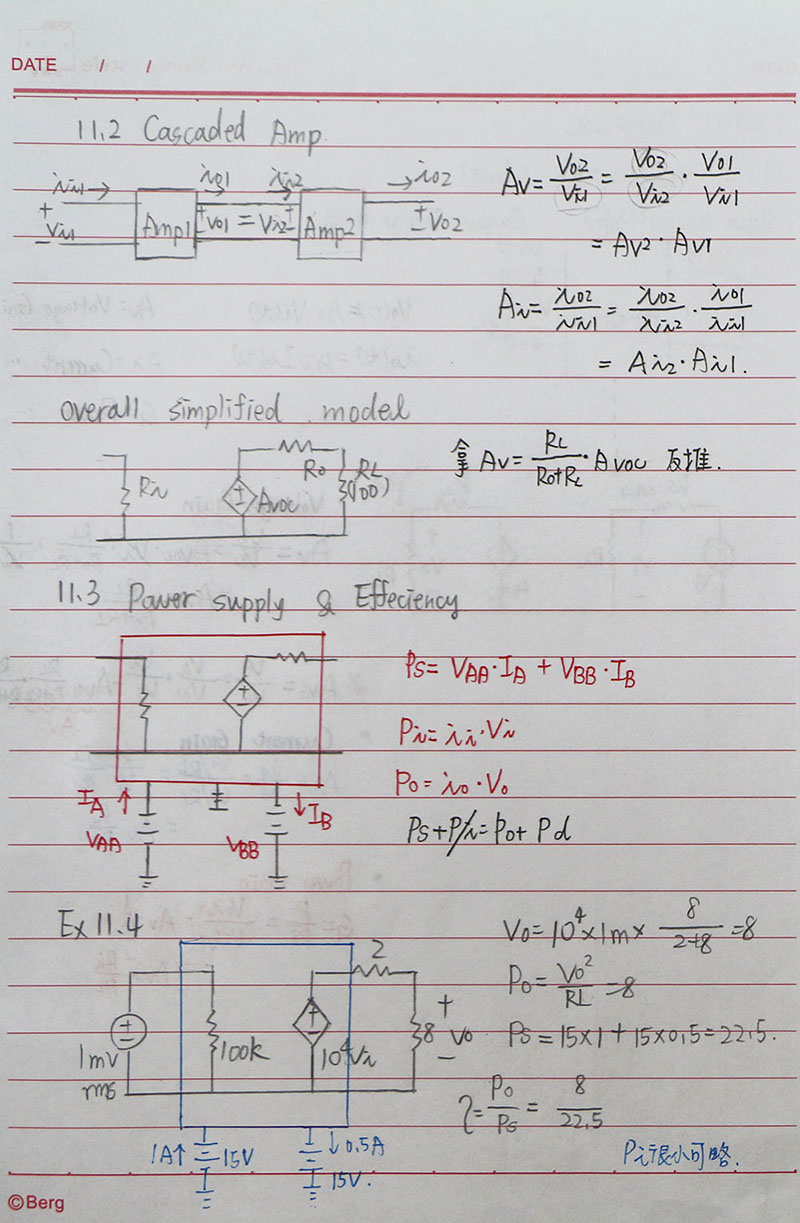 DATE / /
11.2 Cascaded Amp.
iin1→ io1 iin2 →io2
+ Vin1 − Amp1 + Vo1 = Vin2 + Amp2 + Vo2 −
Av = Vo2/Vin1 = Vo2/Vin2 · Vo1/Vin1
= Av2 · Av1
Ai = io2/iin1 = io2/iin2 · io1/iin1
= Ai2 · Ai1.
overall simplified model
Rin + − Avoc Ro RL (100)
拿 Av = RL/(Ro+RL) · Avoc 反推.
11.3 Power supply & Effeciency
Ps = VAA · IA + VBB · IB
Pi = ii · Vi
Po = io · Vo
Ps + Pi = Po + Pd
IA ↑ ↓ IB
VAA VBB
Ex 11.4
1mV rms 100k 10^4Vi 2 8 + Vo −
Vo = 10^4 × 1m × 8/(2+8) = 8
Po = Vo²/RL = 8
Ps = 15×1 + 15×0.5 = 22.5.
η = Po/Ps = 8/22.5
1A↑ 15V ↓0.5A
15V.
Pi很小可略.
©Berg